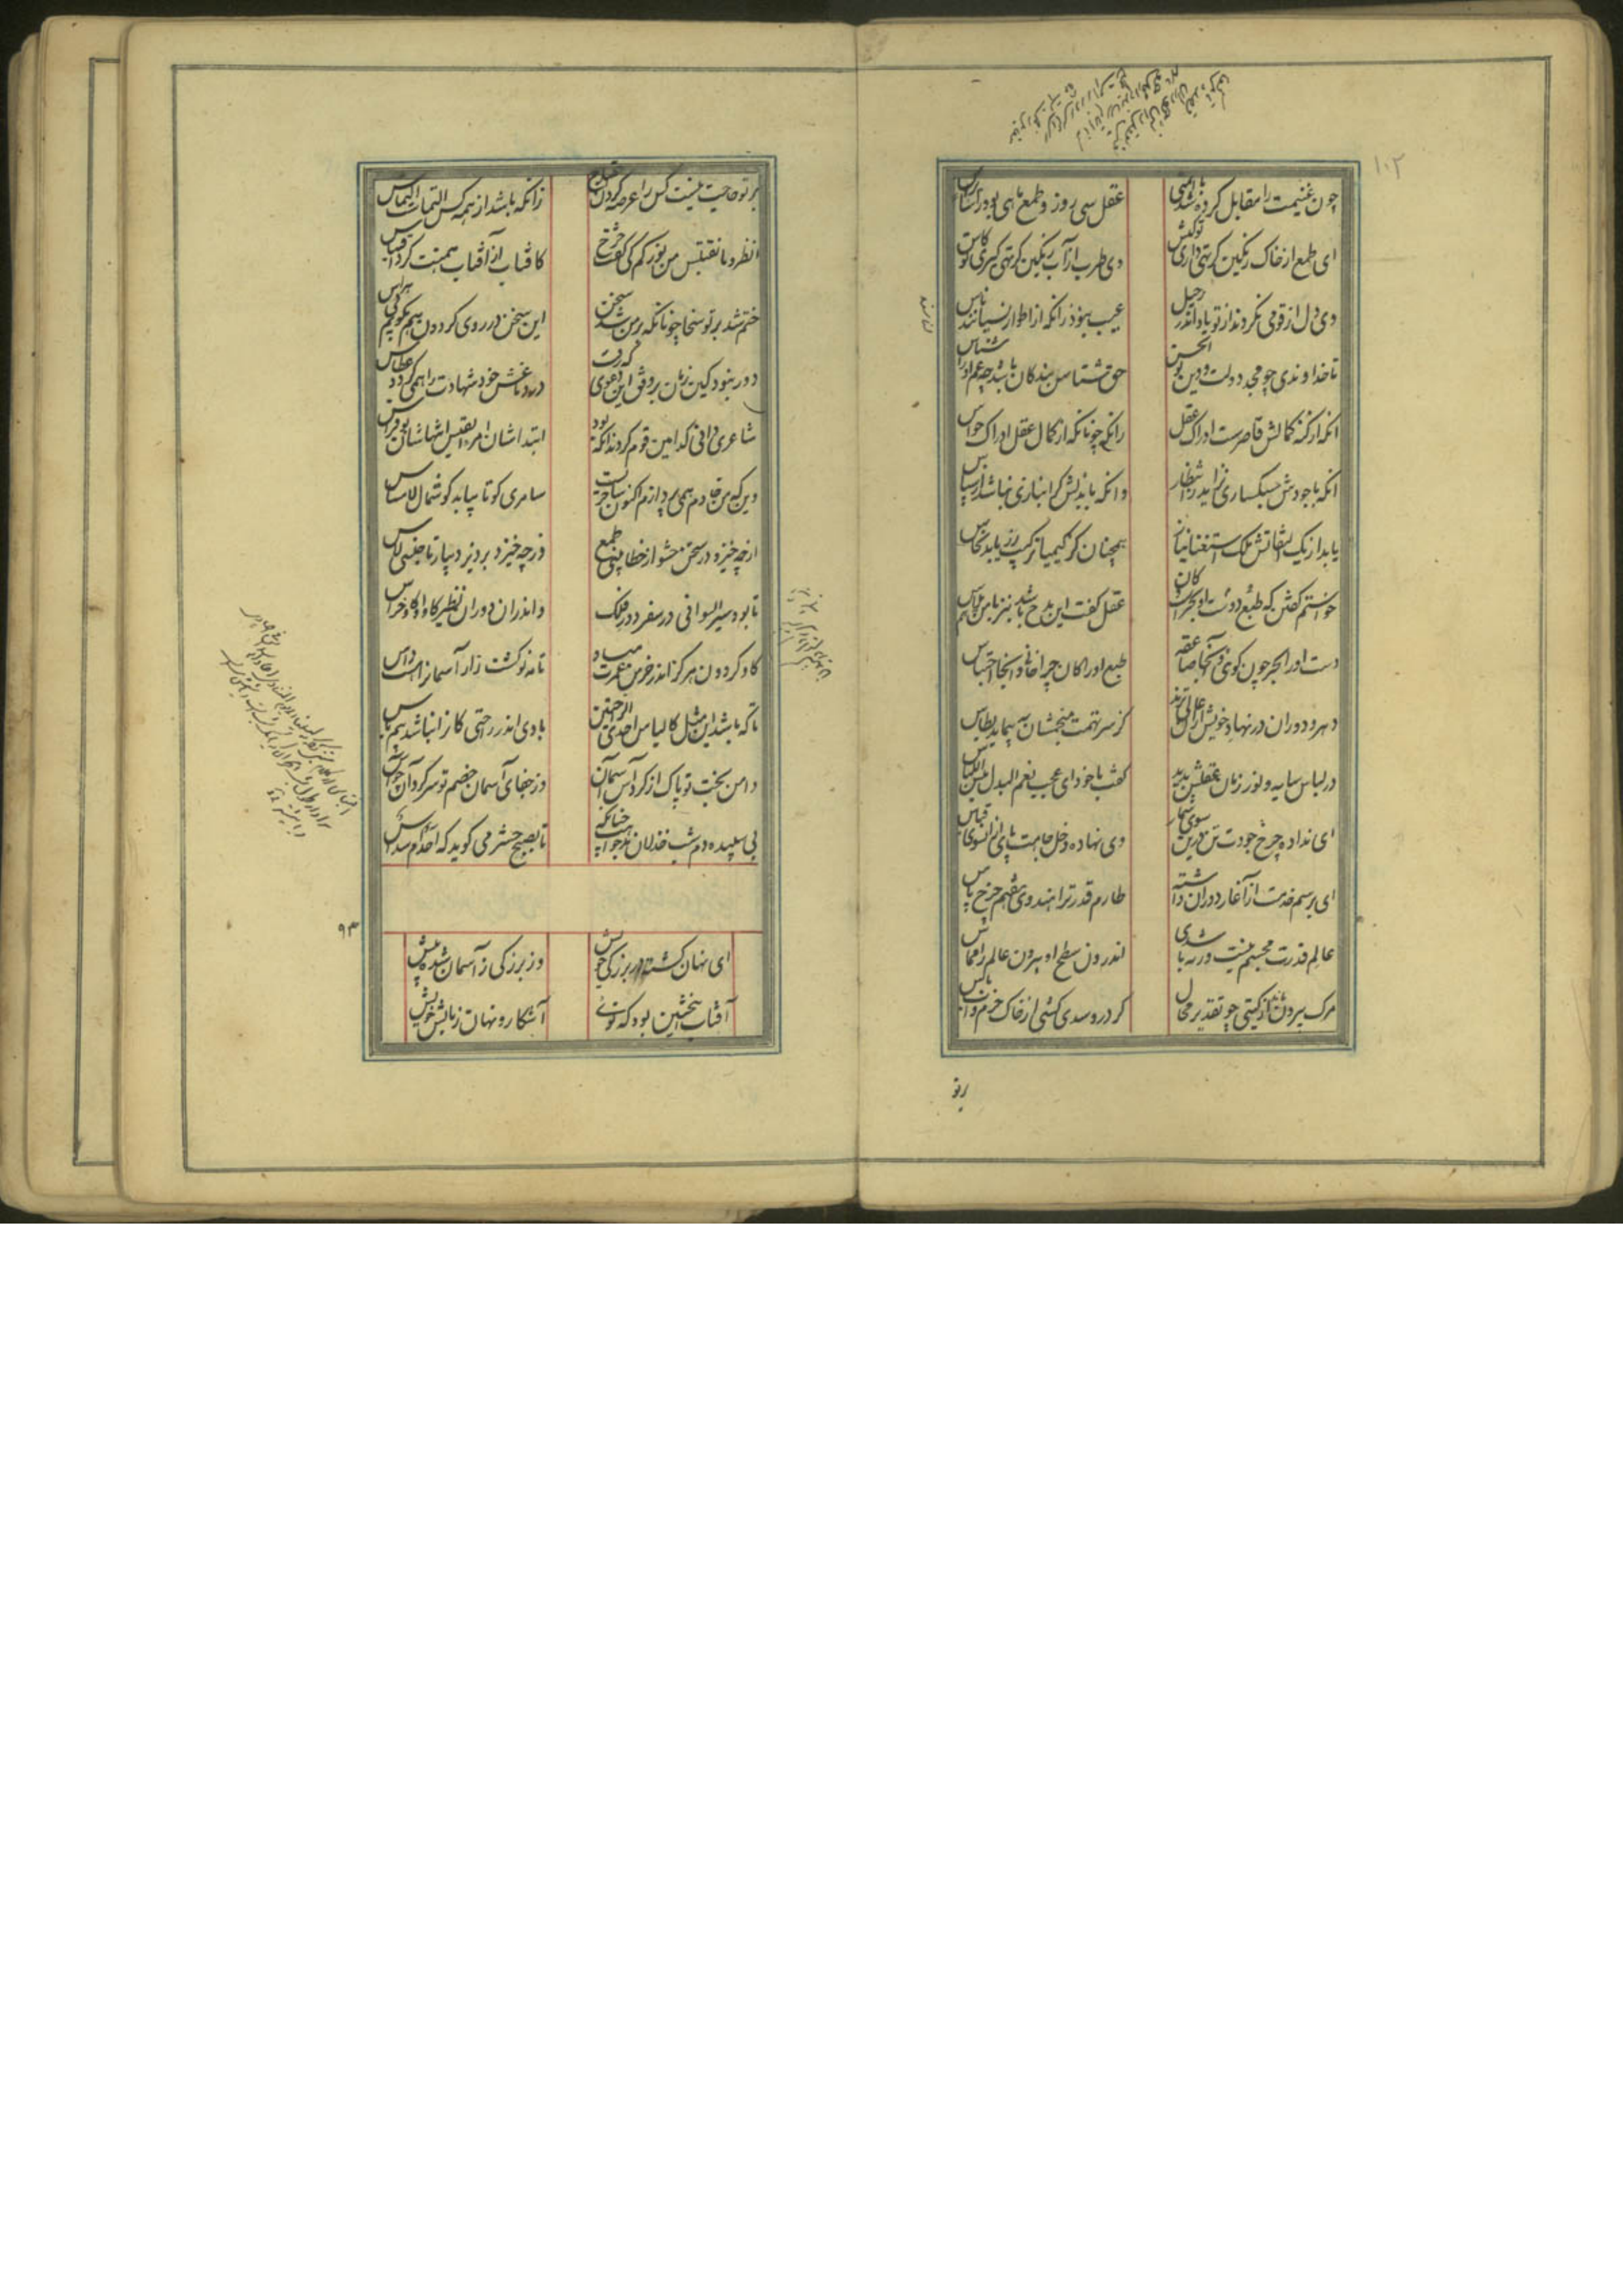 ۱۰۲
چون غنیمت را مقابل کرده شد با ایمنی
عقل سی روز و طمع ماهی بود راسا براس
ای طمع از خاک رنگین گر تهی داری تو کیس
وی طرب از آب رنگین گر تهی گیری تو کاس
وی دل ار قومی نکردند از تو یاد اندر رحیل
عیب نبود زانکه از اطوار نسیانند ناس
تا خداوندی چو مجد دولت و دین بوالحسن
حق شناس بندگان باشد چه غم او را شناس
آنکه از کنه کمالش قاصرست ادراک عقل
راست چونانکه از کمال عقل ادراک حواس
آنکه با جودش سبکساری نزاید ز انتظار
وانکه با بذلش گرانباری نباشد از سپاس
یابد از یک التفاتش ملک استغنا نیاز
همچنان کز کیمیا ترکیب زر یابد نحاس
خواستم گفتن که طبع و دست او بحرست و کان
عقل گفت این مدح باشد نیز با من هم پلاس
دست او را بحر چون گویی و آنجا صاعقه
طبع او را کان چرا خوانی و اینجا احتباس
دهر و دوران در نهاد خویش از آن عالی‌ترند
کز سر تهمت منجمشان بپیماید بطاس
در لباس سایه و نور زمان عقلش بدید
گفت با خود ای عجب نعم البدل بئس اللباس
ای نداده چرخ جودت تن درین سوی شمار
وی نهاده دخل جاهت پای از آنسوی قیاس
ای برسم خدمت از آغاز دوران داشته
طارم قدر ترا هندوی هفتم چرخ پاس
عالم قدرت مجسم نیست ورنه باشدی
اندرون سطح او بیرون عالم را مماس
مرگ بیرون ماند از گیتی چو تقدیر محال
گر درو سدی کشی از خاک حزم و آب باس
بر تو حاجت نیست کس را عرضه کردن احتیاج
زانکه باشد از همه کس التماست التماس
انظرونا نقتبس من نورکم کی گفت چرخ
کافتاب از آفتاب همتت کرد اقتباس
ختم شد بر تو سخا چونانکه بر من شد سخن
این سخن در روی گردون هم بگویم بی هراس
دور نبود کین زمان بر وفق این دعوی که رفت
در دماغش خود شهادت را همی گردد عطاس
شاعری دانی کدامین قوم کردند آنکه بود
ابتداشان امرؤالقیس انتهاشان بوفراس
وین که من خادم همی پردازم اکنون ساحریست
سامری کو تا بیابد گوشمال لامساس
از چه خیزد در سخن حشو از خطا بینی طبع
وز چه خیزد پرز بر دیبا ز ناجنسی لاس
تا بود سیر السوانی در سفر دور فلک
واندران دوران نظیر گاو او گاو خراس
گاو گردون هرگز اندر خرمن عمرت مباد
تا مه نو کشت‌زار آسمان را هست داس
تا که باشد این مثل کالیاس احدی الراحتین
بادی اندر راحتی کانرا نباشد بیم یاس
دامن بخت تو پاک از گرد آس آسمان
وز جفای آسمان خصم تو سرگردان چو آس
بی سپیده‌دم شب خذلان بدخواهت چنانک
تا بصبح حشر می‌گوید که احاد ام سداس
۹۳
ای نهان گشته در بزرگی خویش
وز بزرگی ز آسمان شده بیش
آفتاب این چنین بود که توئی
آشکار و نهان ز تابش خویش